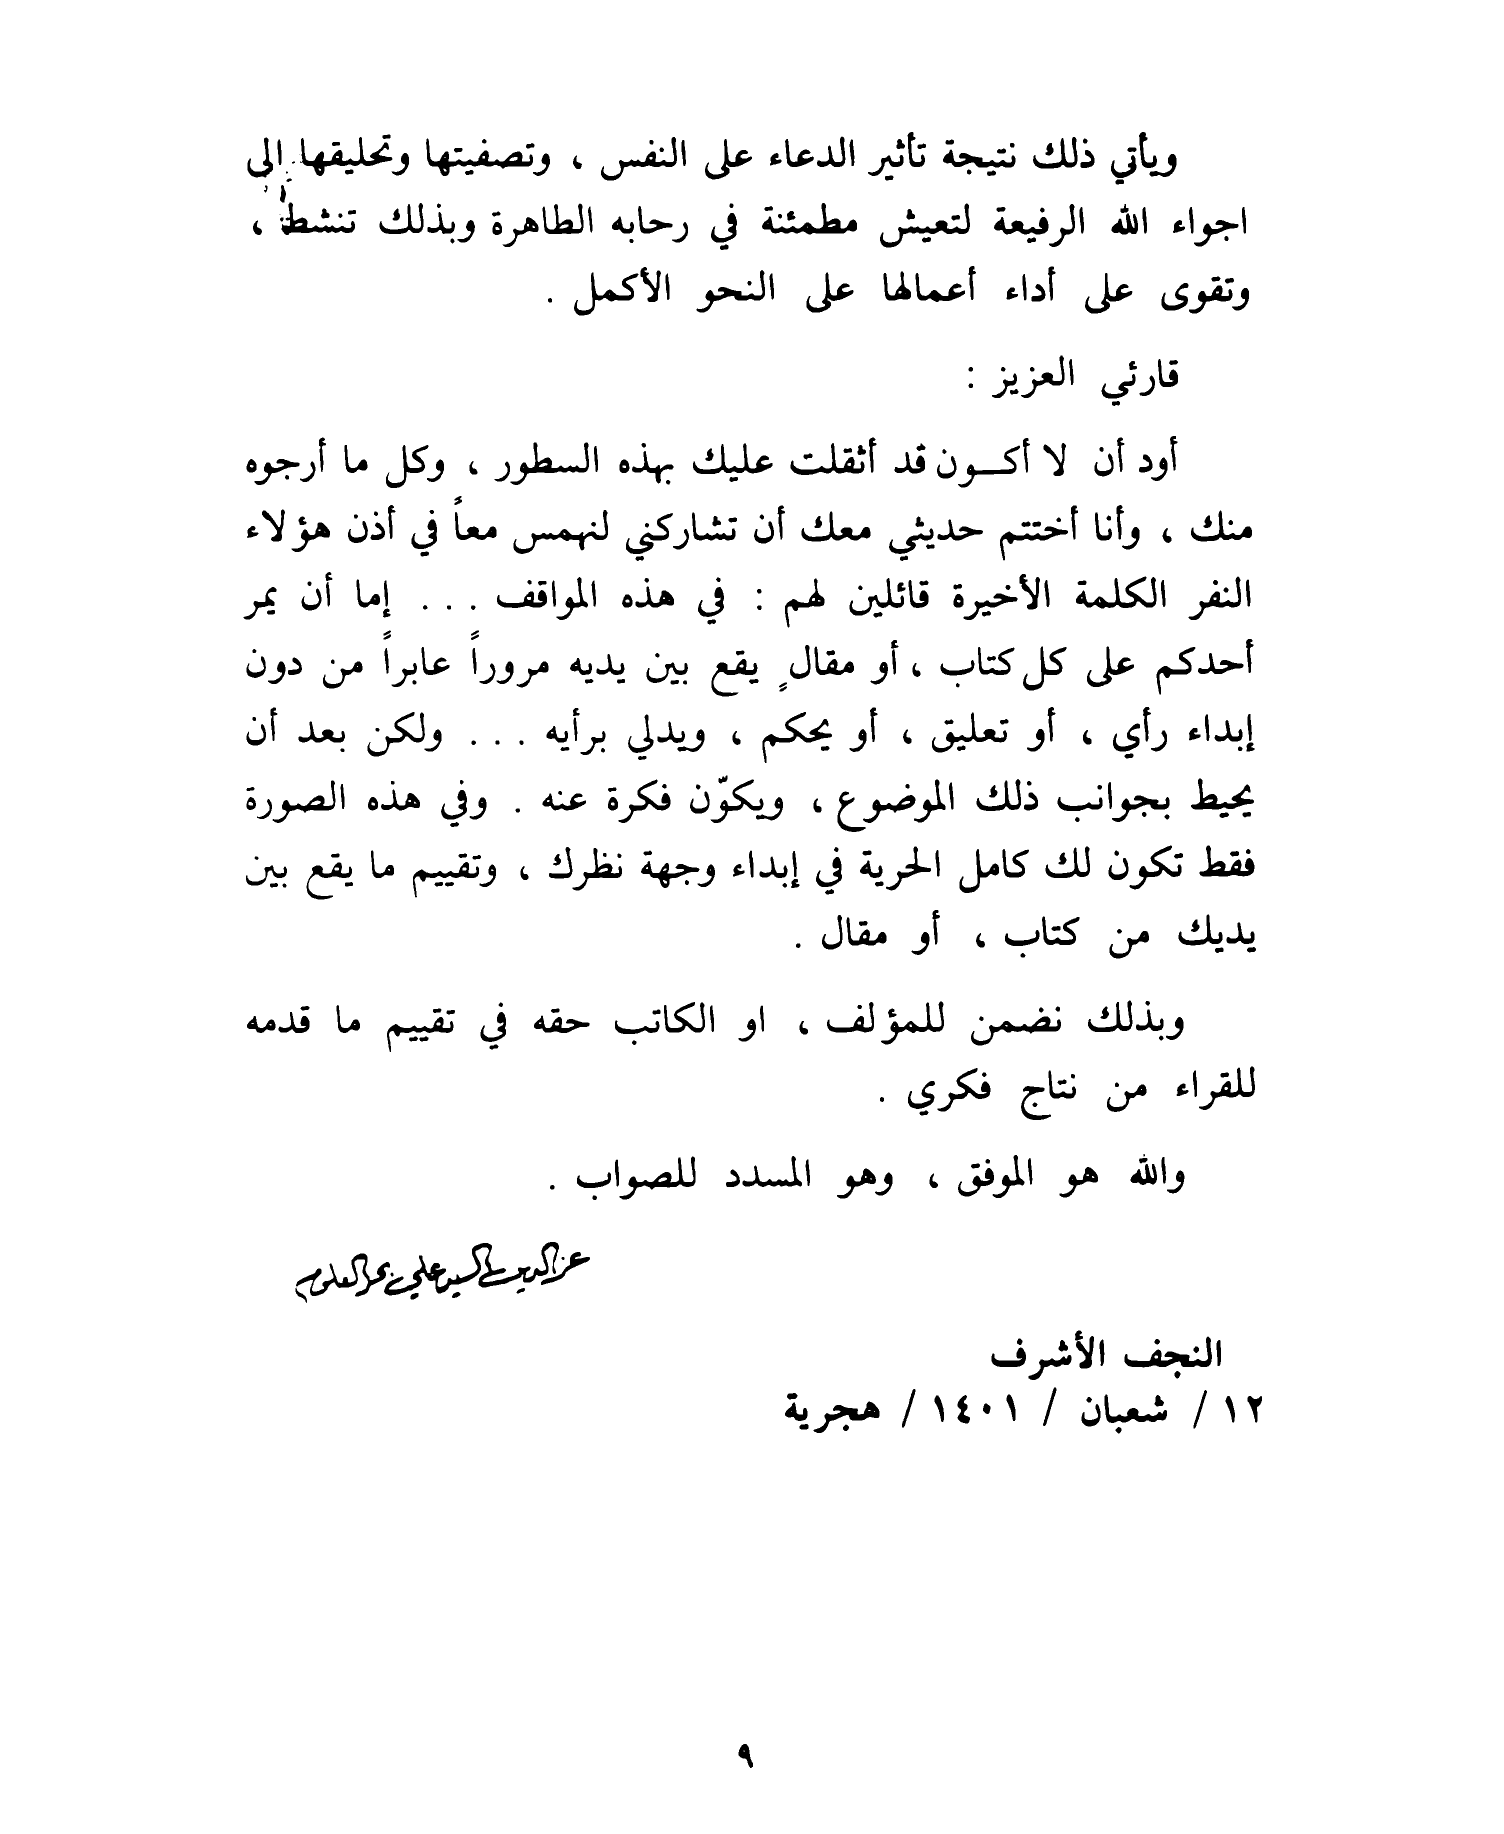 ويأتي ذلك نتيجة تأثير الدعاء على النفس ، وتصفيتها وتحليقها الى
اجواء الله الرفيعة لتعيش مطمئنة في رحابه الطاهرة وبذلك تنشط ،
وتقوى على أداء أعمالها على النحو الأكمل .
قارئي العزيز :
أود أن لا أكـون قد أثقلت عليك بهذه السطور ، وكل ما أرجوه
منك ، وأنا أختتم حديثي معك أن تشاركني لنهمس معاً في أذن هؤلاء
النفر الكلمة الأخيرة قائلين لهم : في هذه المواقف . . . إما أن يمر
أحدكم على كل كتاب ، أو مقالٍ يقع بين يديه مروراً عابراً من دون
إبداء رأي ، أو تعليق ، أو يحكم ، ويدلي برأيه . . . ولكن بعد أن
يحيط بجوانب ذلك الموضوع ، ويكوّن فكرة عنه . وفي هذه الصورة
فقط تكون لك كامل الحرية في إبداء وجهة نظرك ، وتقييم ما يقع بين
يديك من كتاب ، أو مقال .
وبذلك نضمن للمؤلف ، او الكاتب حقه في تقييم ما قدمه
للقراء من نتاج فكري .
والله هو الموفق ، وهو المسدد للصواب .
عز الدين السيد علي بحر العلوم
النجف الأشرف
١٢ / شعبان / ١٤٠١ / هجرية
٩